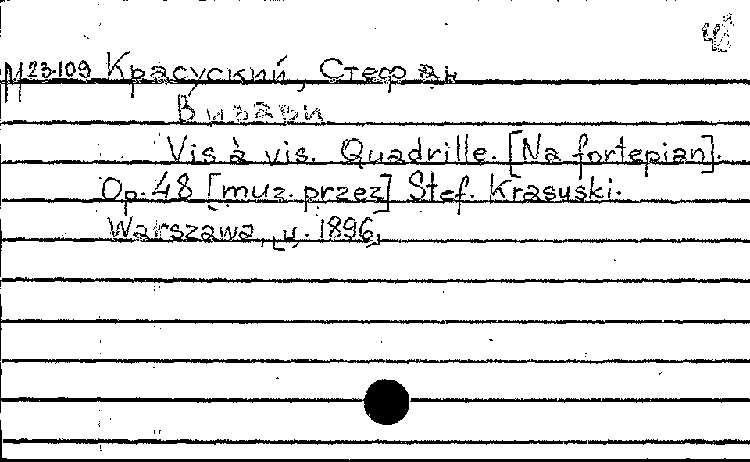 М 23-109 Красуский, Стефан
Визави
Vis à vis. Quadrille. [Na fortepian].
Op. 48 [muz. przez] Stef. Krasuski.
Warszawa, [ц. 1896]